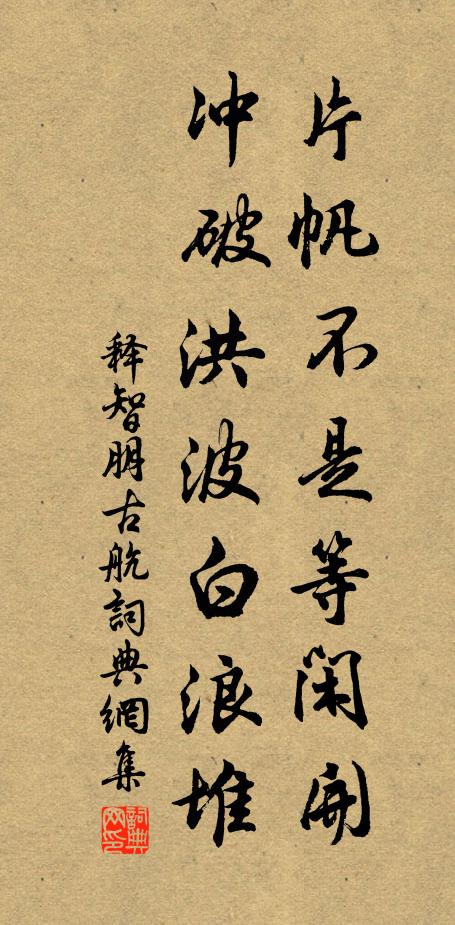 片帆不是等闲開
冲破洪波白浪堆
释智朋古航詞典網集
詞典
网印